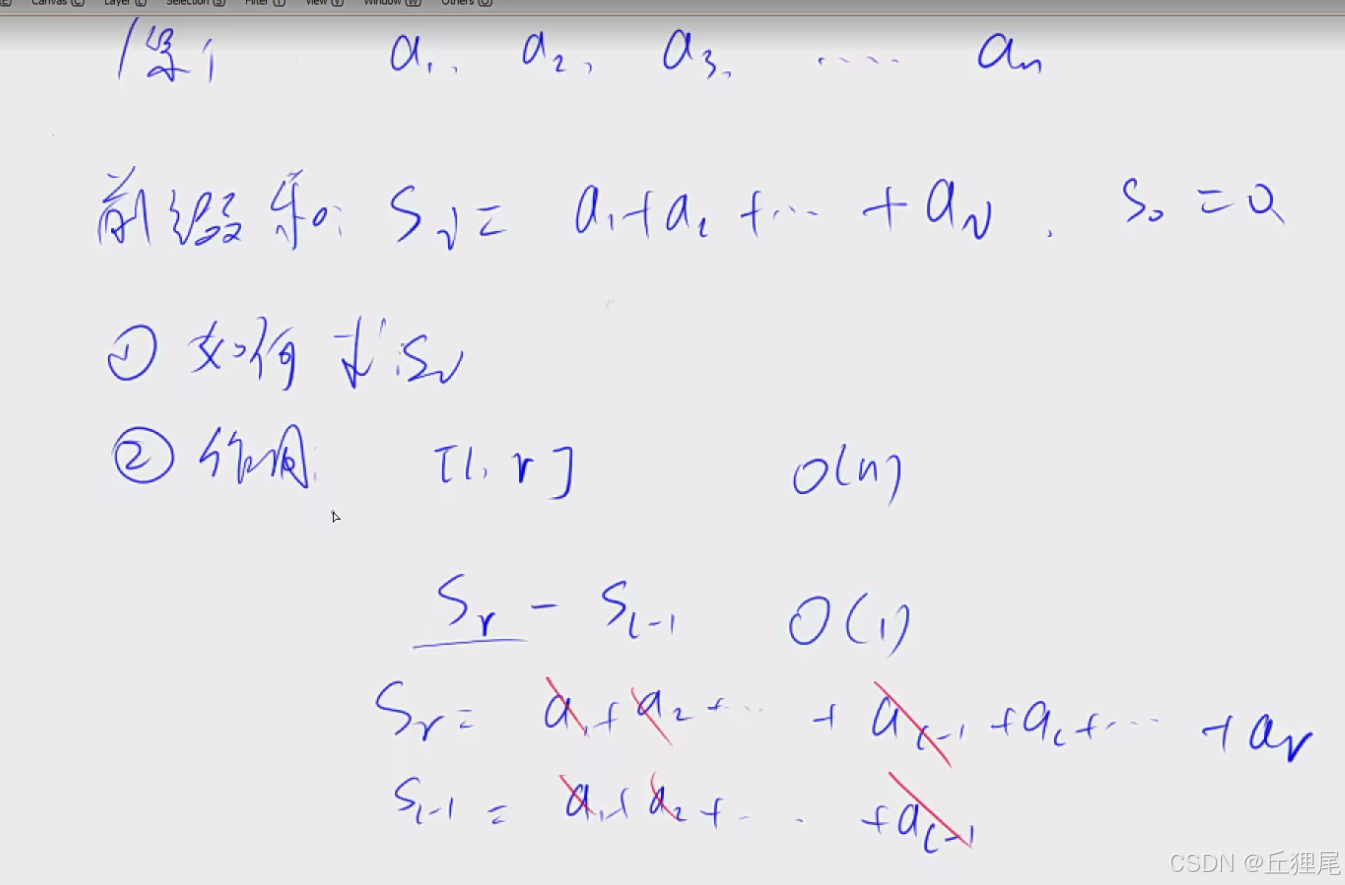 Canvas Layer Selection (S) Filter View Window Others (O)
a₁, a₂, a₃, ..... aₙ
前缀和: Sᵢ = a₁+a₂ +... + aᵢ. S₀ = 0
① 如何求 Sᵢ
② 作用: [l, r] O(n)
Sᵣ - Sₗ₋₁ O(1)
Sᵣ = a₁+a₂+... + aₗ₋₁ +aₗ+... +aᵣ
Sₗ₋₁ = a₁+a₂+... +aₗ₋₁
CSDN @丘狸尾